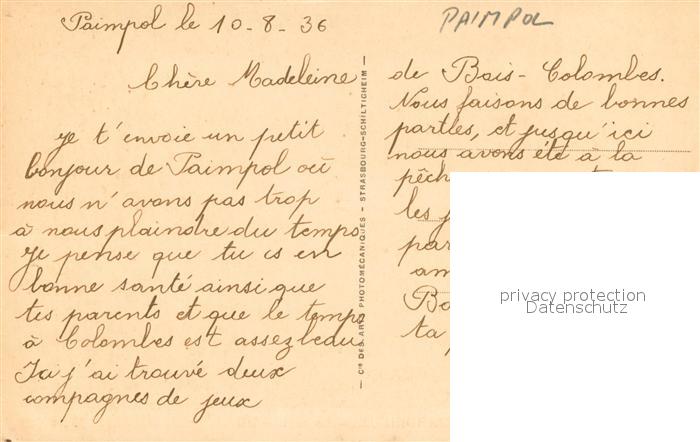 Paimpol le 10-8-36
PAIMPOL
Chère Madeleine
je t'envoie un petit
bonjour de Paimpol où
nous n'avons pas trop
à nous plaindre du temps
je pense que tu es en
bonne santé ainsi que
tes parents et que le temps
à Colombes est assez beau
Ici j'ai trouvé deux
compagnes de jeux
— Cie DES ARTS PHOTOMÉCANIQUES - STRASBOURG-SCHILTIGHEIM —
de Bois-Colombes.
Nous faisons de bonnes
parties, et jusqu'ici
nous avons été à la
pêch
les j
par
am
Bo
ta
privacy protection
Datenschutz